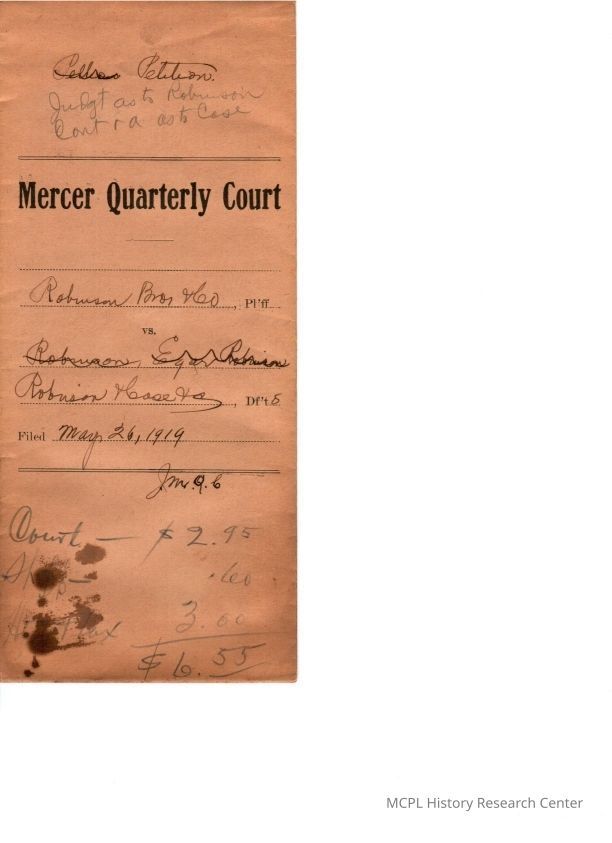 Petition.
Judgt as to Robinson
Cont'd as to Case
Mercer Quarterly Court
Robinson Bros & Co , Pl'ff
vs.
Robinson, Robinson
Robinson & Case &c , Df'ts
Filed May 26, 1919
Court — $ 2.95
.60
Tax 3.00
$ 6.55
MCPL History Research Center